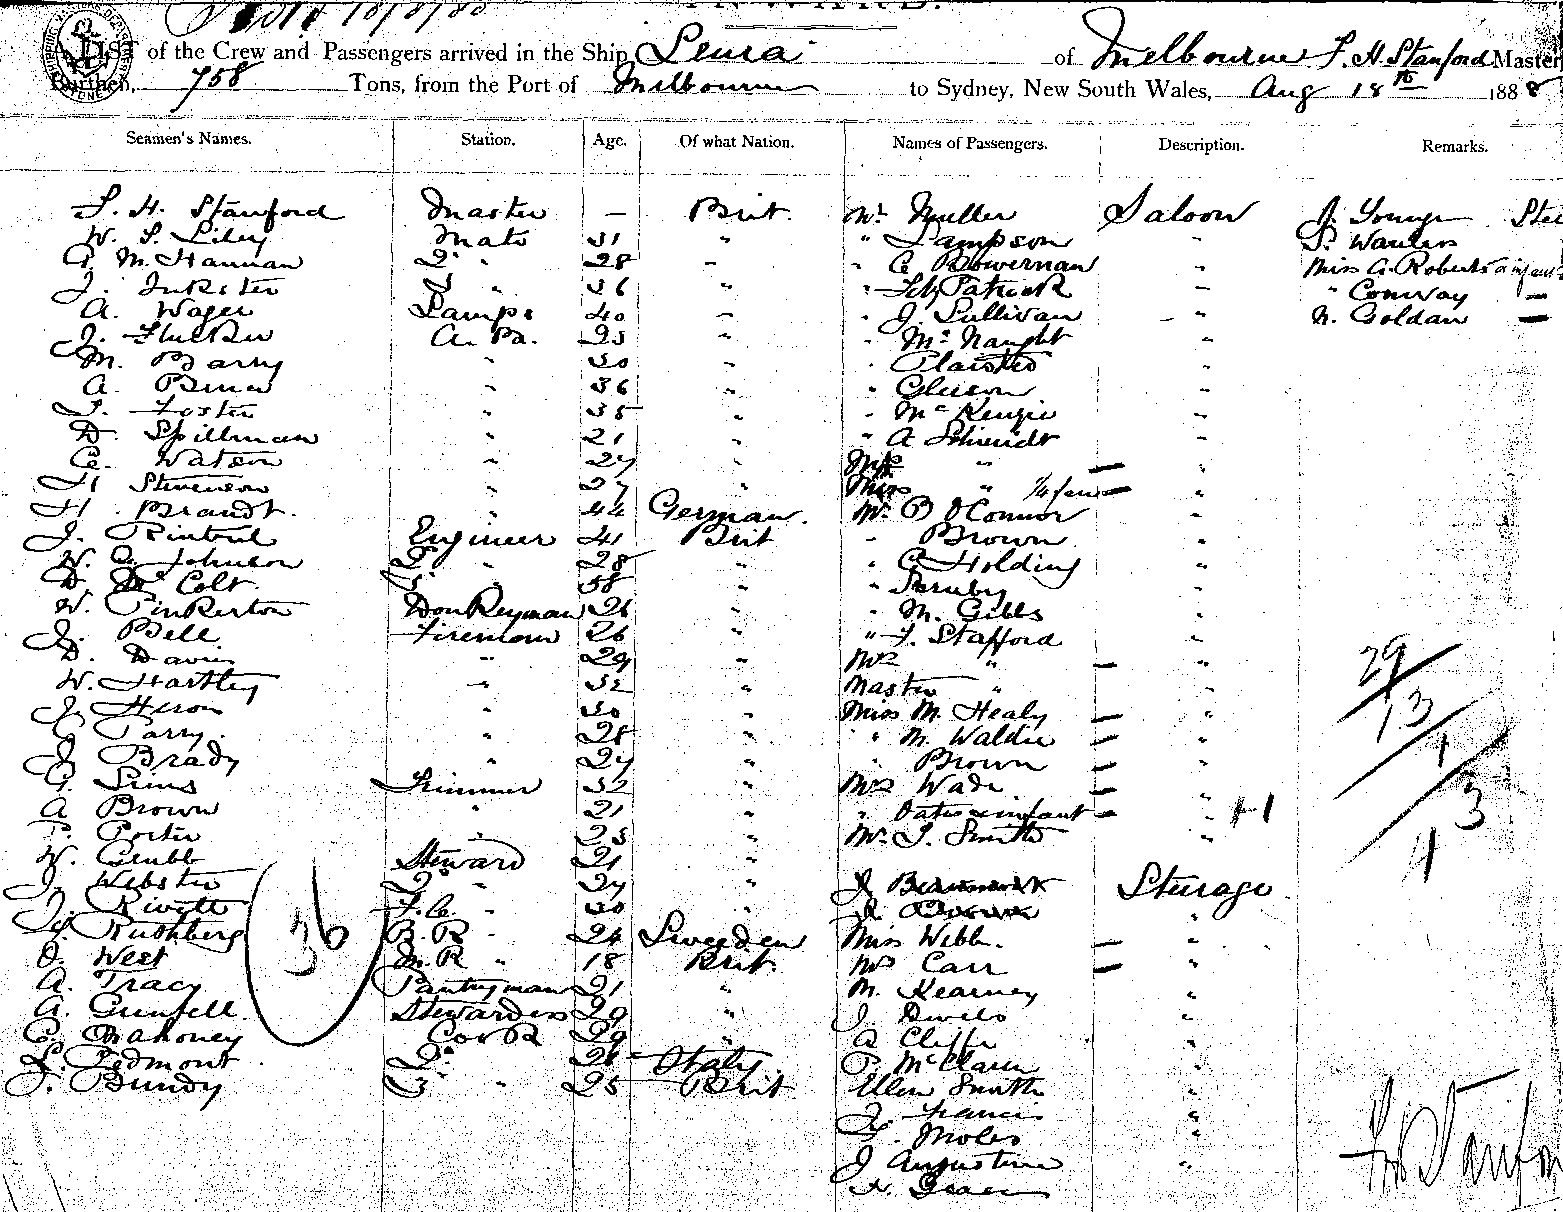 INWARDS.
A LIST of the Crew and Passengers arrived in the Ship Leura of Melbourne F. H. Stanford Master
Burthen, 758 Tons, from the Port of Melbourne to Sydney, New South Wales, Aug 18th 1888
Seamen's Names. Station. Age. Of what Nation. Names of Passengers. Description. Remarks.
F. H. Stanford Master — Brit. Mr Muller Saloon J. Young
W. S. Mate 31 " " Lampson " S. Wauters
G. M. Hannan 2 " 28 " " C Bowerman " Miss G. Roberts
J. Inkster 3 " 36 " " FitzPatrick " " Conway —
A. Wager Lamps 40 " " J. Sullivan " N. Goldan —
J. A. B. 25 " " McNaught "
M. Barry " 30 " " Plaisted "
A. Bruce " 36 " " Gleeson "
F. Foster " 35 " " McKenzie "
D. Spillman " 21 " " A Schmidt "
C. Watson " 27 " Mrs " — "
H Stevenson " 27 " Miss " — "
H. Brandt. " 44 German. Mr. P O'Connor "
J. Rintoul Engineer 41 Brit " Brown "
W. C. Johnson 2 " 28 " " C Holding "
D. Mc Colt 3 " 38 " "
W. Pinkerton Donkeyman 26 " " M. Gibbs "
J. Bell Fireman 26 " " F. Stafford "
D. Davis " 29 " Mrs " — "
W. Hartley " 32 " Master " "
J. Heron " 30 " Miss M. Healy — "
C Parry. " 28 " " M. Waldie — "
J Brady " 27 " " Brown — "
G. Sims Trimmer 32 " Mrs Wade "
A Brown " 21 " " Oates & infant — " +1
P. Porter " 25 " Mr. J. Smith "
W. Grubb Steward 21 "
J. Webster 2 " 27 " J Steerage
J. Rivett F.C. " 30 " "
Rushberg B.R " 24 Sweeden Miss Webb. — "
O. West M.R " 18 Brit. Mrs Carr — "
A. Tracy Pantryman 21 " M. Kearney "
A. Grenfell Stewardess 29 " J "
C. Mahoney Cook 29 " A Cliffe "
L. Pedmont 2 " 26 Italy P. McClaren "
J. Bundy 3 " 25 Brit Ellen Smith "
J. Francis "
Moles "
J Augustine "
36
29
13
1
3
4